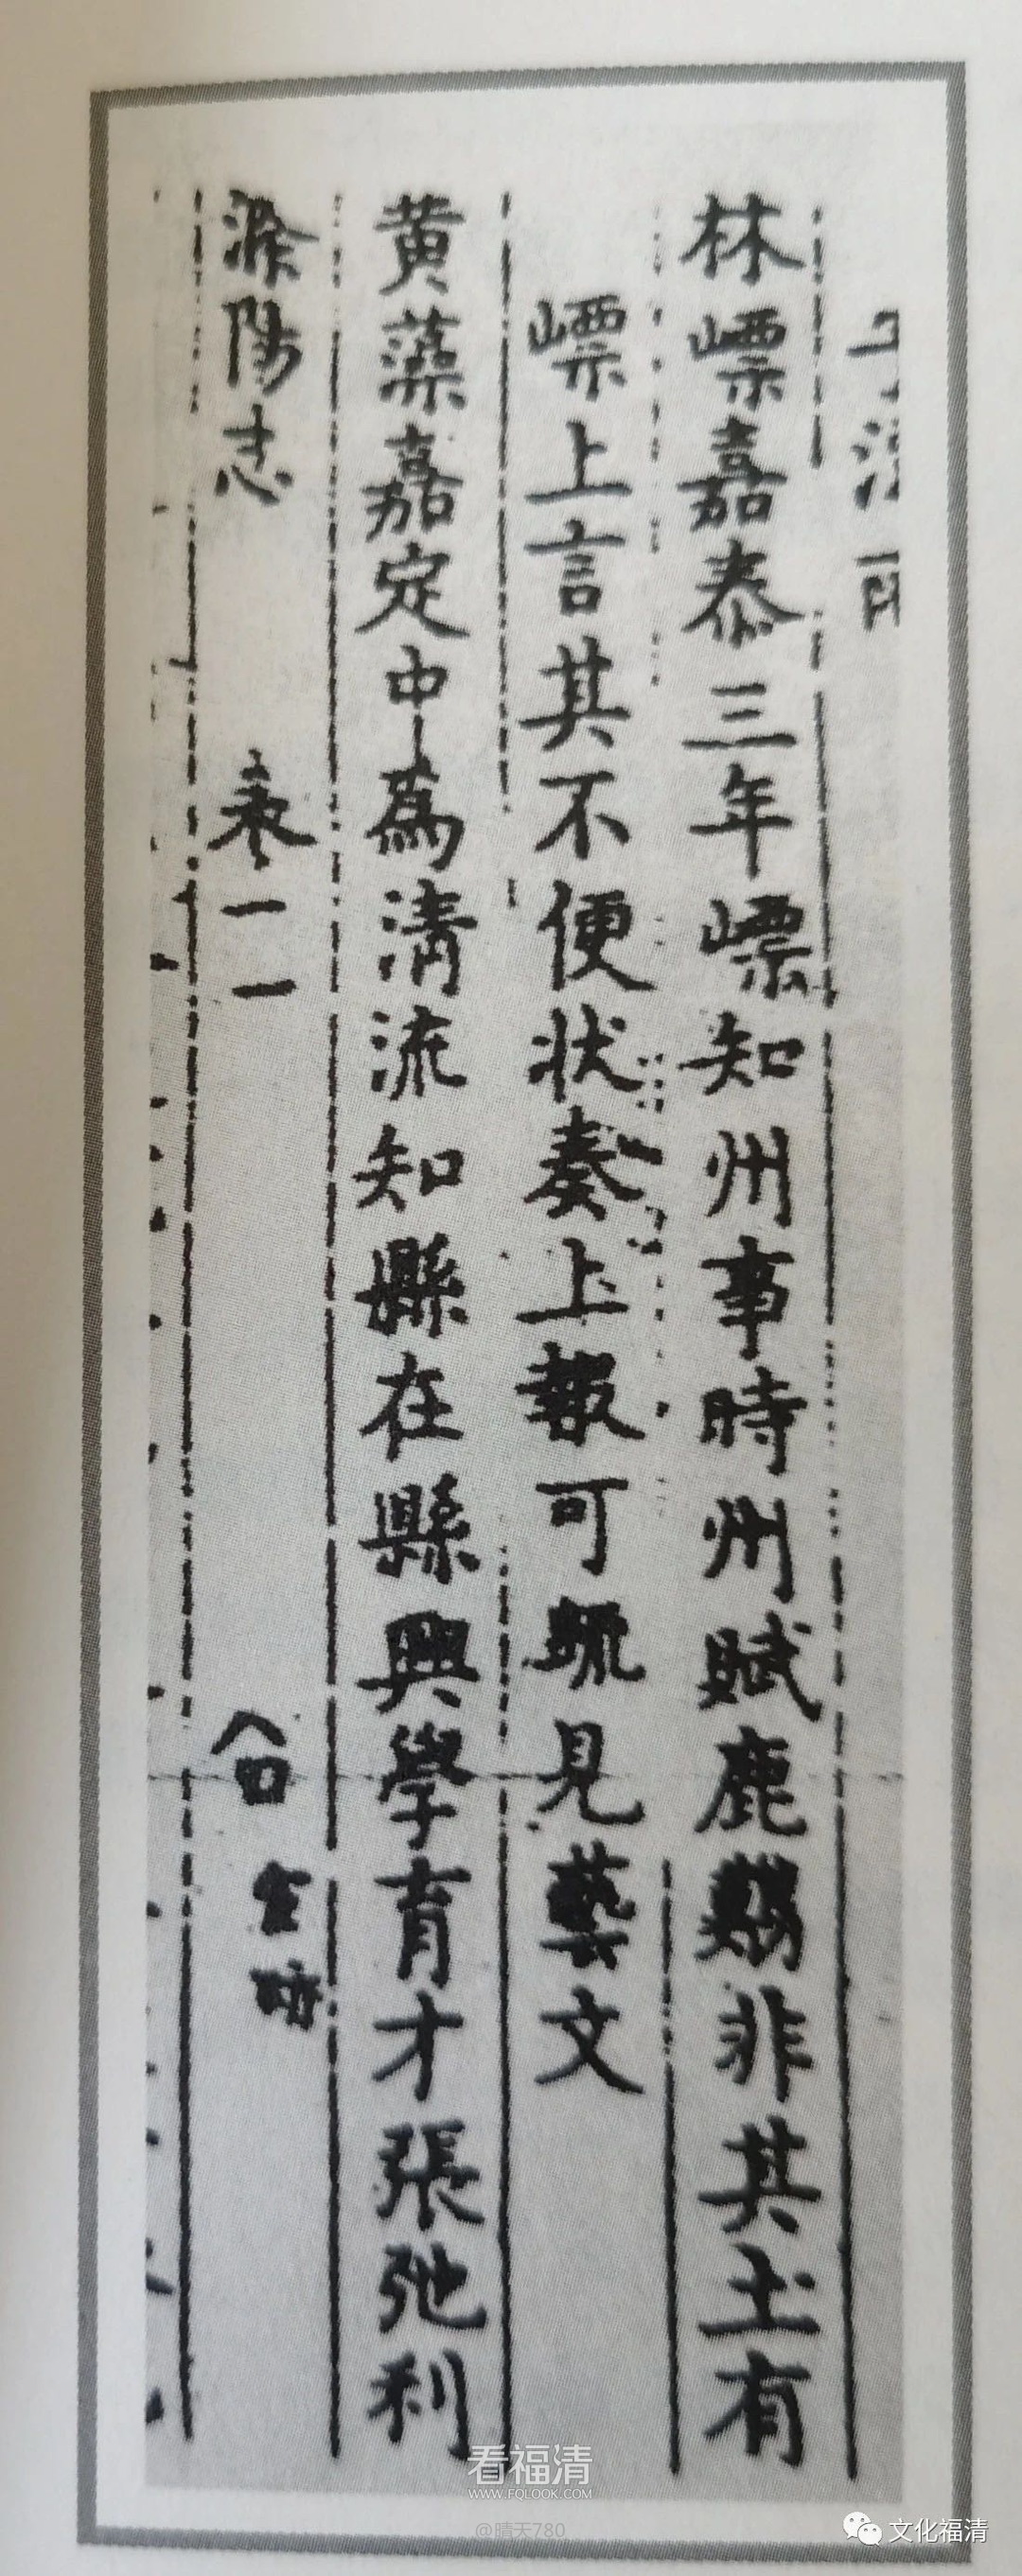 林嶛嘉泰三年嶛知州事時州賦鹿翦非其土有
嶛上言其不便狀奏上報可疏見藝文
黄藻嘉定中為清流知縣在縣興學育才張弛利
滁陽志
看福清
WWW.FQLOOK.COM
@晴天780
文化福清